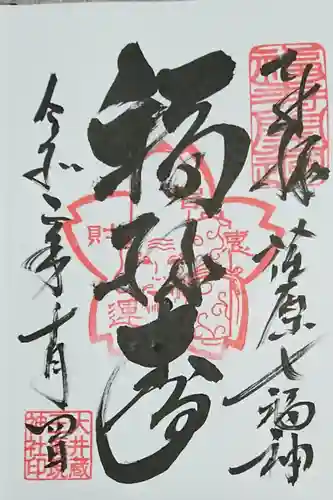 奉拝
荏原七福神
福禄寿
財
運
令和二年十月四日
大井蔵
王権現
神社印